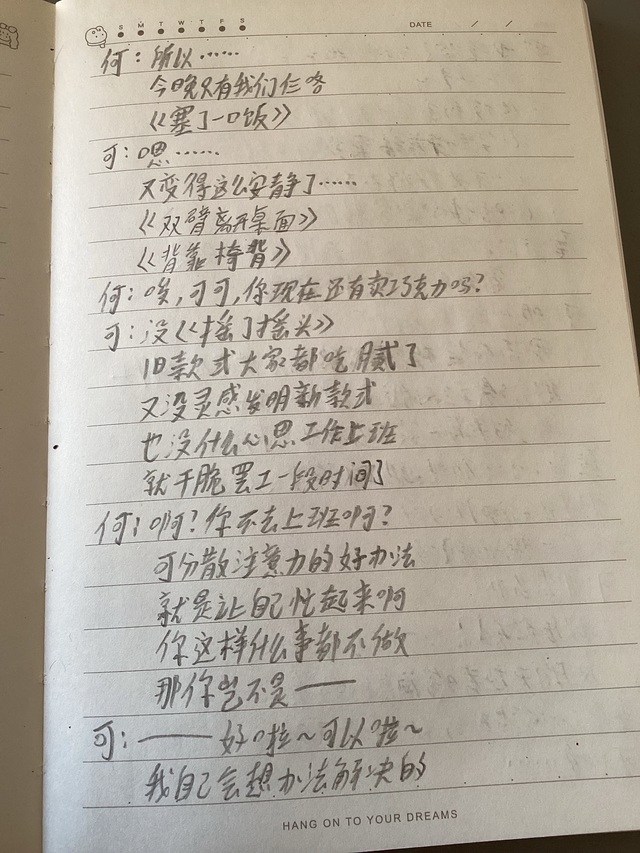 S M T W T F S
DATE / /
何：所以……
今晚只有我们仨咯
《塞了一口饭》
可：嗯……
又变得这么安静了……
《双臂离开桌面》
《背靠椅背》
何：唉，可可，你现在还有卖巧克力吗？
可：没《摇了摇头》
旧款式大家都吃腻了
又没灵感发明新款式
也没什么心思工作上班
就干脆罢工一段时间了
何：啊？你不去上班啊？
可分散注意力的好办法
就是让自己忙起来啊
你这样什么事都不做
那你岂不是——
可：——好啦~可以啦~
我自己会想办法解决的
HANG ON TO YOUR DREAMS